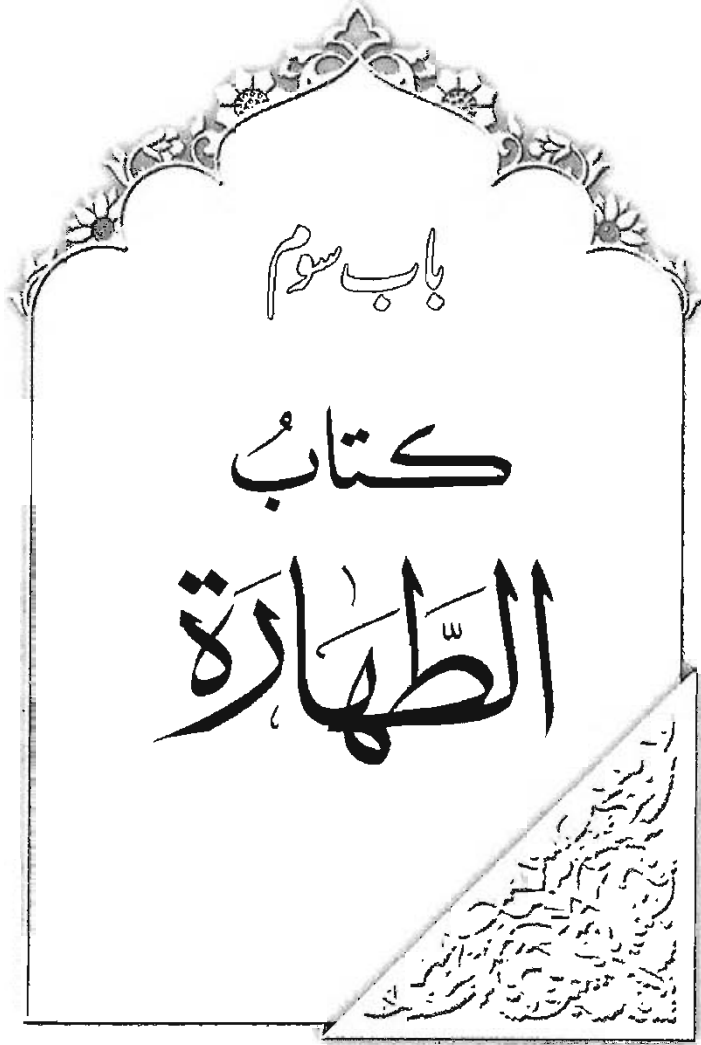 باب سوم
كتابُ
الطَّهارَة